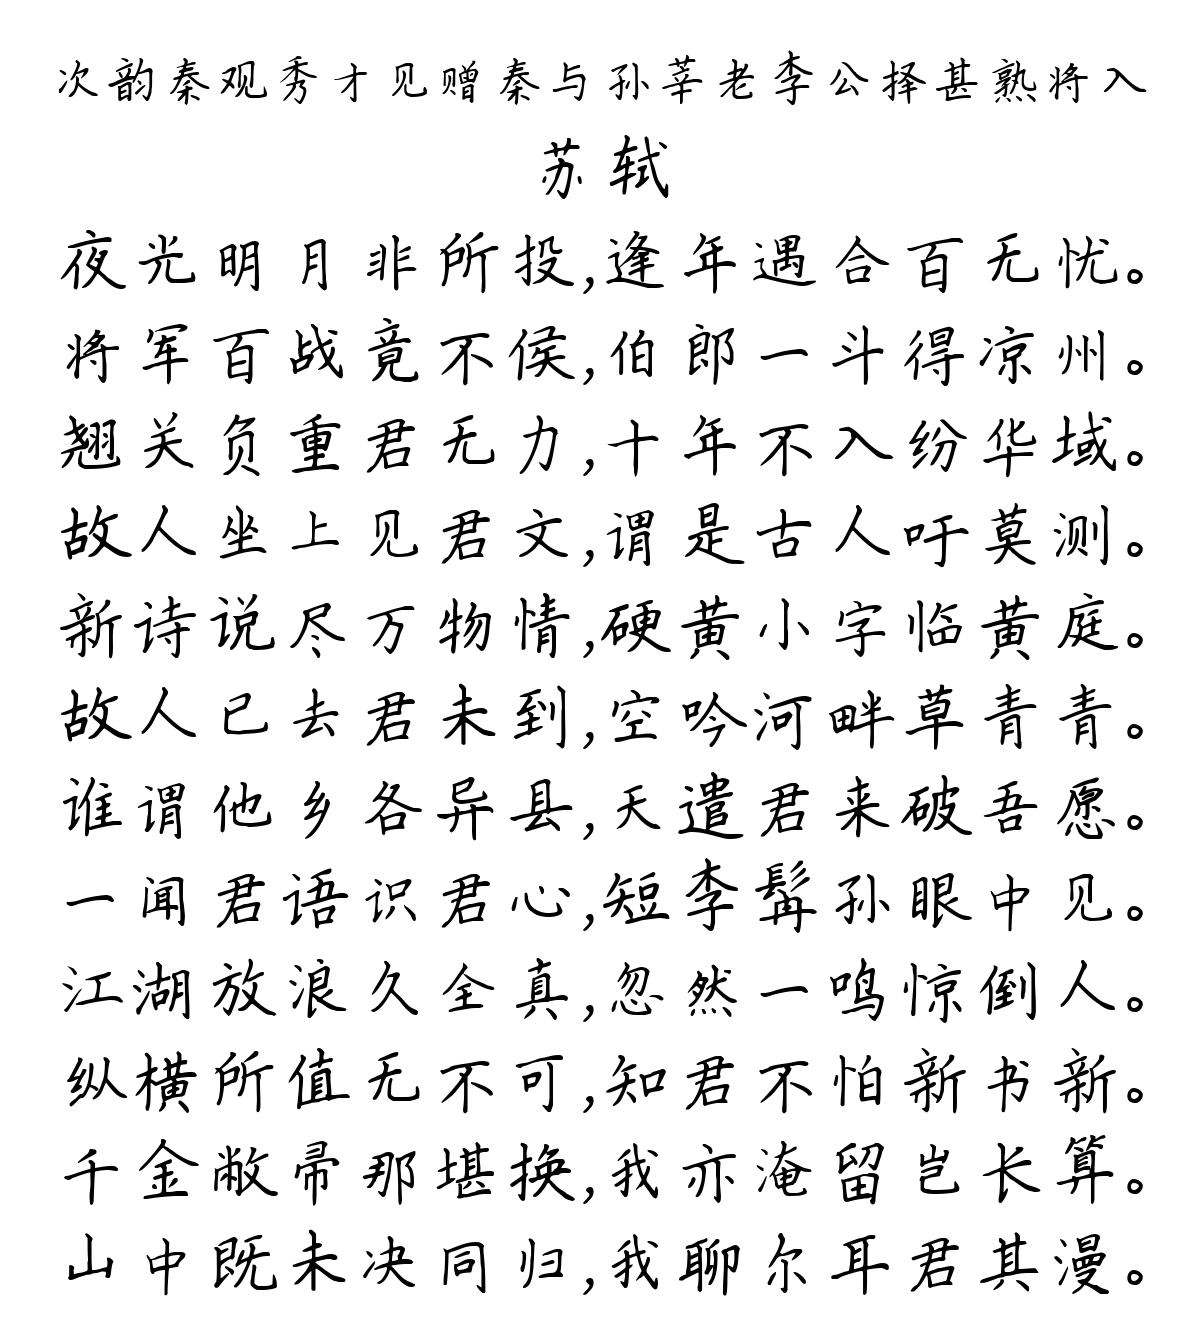 次韵秦观秀才见赠秦与孙莘老李公择甚熟将入
苏轼
夜光明月非所投,逢年遇合百无忧。
将军百战竟不侯,伯郎一斗得凉州。
翘关负重君无力,十年不入纷华域。
故人坐上见君文,谓是古人吁莫测。
新诗说尽万物情,硬黄小字临黄庭。
故人已去君未到,空吟河畔草青青。
谁谓他乡各异县,天遣君来破吾愿。
一闻君语识君心,短李髯孙眼中见。
江湖放浪久全真,忽然一鸣惊倒人。
纵横所值无不可,知君不怕新书新。
千金敝帚那堪换,我亦淹留岂长算。
山中既未决同归,我聊尔耳君其漫。